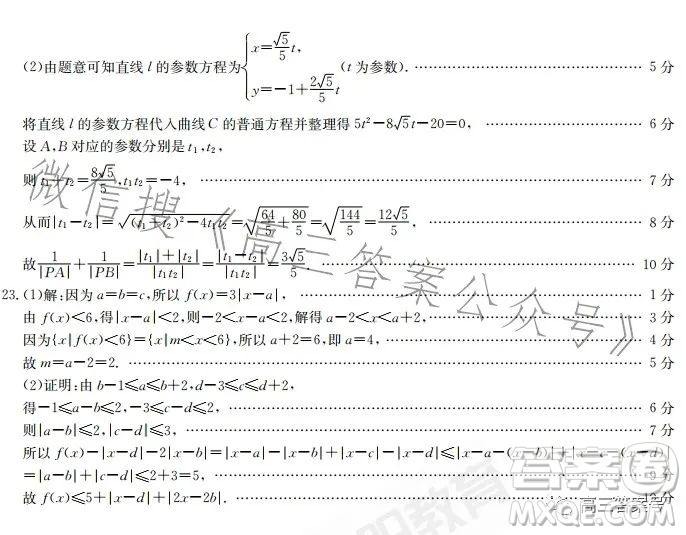 (2)由题意可知直线 l 的参数方程为{x=√5/5 t, y=-1+2√5/5 t (t 为参数). ………… 5 分
将直线 l 的参数方程代入曲线 C 的普通方程并整理得 5t²-8√5t-20=0, ………… 6 分
设 A,B 对应的参数分别是 t₁,t₂,
则 t₁+t₂=8√5/5,t₁t₂=-4, ………… 7 分
从而|t₁-t₂|=√((t₁+t₂)²-4t₁t₂)=√(64/5+80/5)=√(144/5)=12√5/5, ………… 8 分
故 1/|PA|+1/|PB|=(|t₁|+|t₂|)/|t₁t₂|=|t₁-t₂|/|t₁t₂|=3√5/5. ………… 10 分
23.(1)解:因为 a=b=c,所以 f(x)=3|x-a|, ………… 1 分
由 f(x)<6,得|x-a|<2,则-2<x-a<2,解得 a-2<x<a+2, ………… 3 分
因为{x|f(x)<6}={x|m<x<6},所以 a+2=6,即 a=4, ………… 4 分
故 m=a-2=2. ………… 5 分
(2)证明:由 b-1≤a≤b+2,d-3≤c≤d+2,
得-1≤a-b≤2,-3≤c-d≤2, ………… 6 分
则|a-b|≤2,|c-d|≤3, ………… 7 分
所以 f(x)-|x-d|-2|x-b|=|x-a|-|x-b|+|x-c|-|x-d|≤|x-a-(x-b)|+|x-c-(x-d)|
=|a-b|+|c-d|≤2+3=5, ………… 9 分
故 f(x)≤5+|x-d|+|2x-2b|.
微信搜《高三答案公众号》
教育
答案圈
高三答案号
MXQE.COM